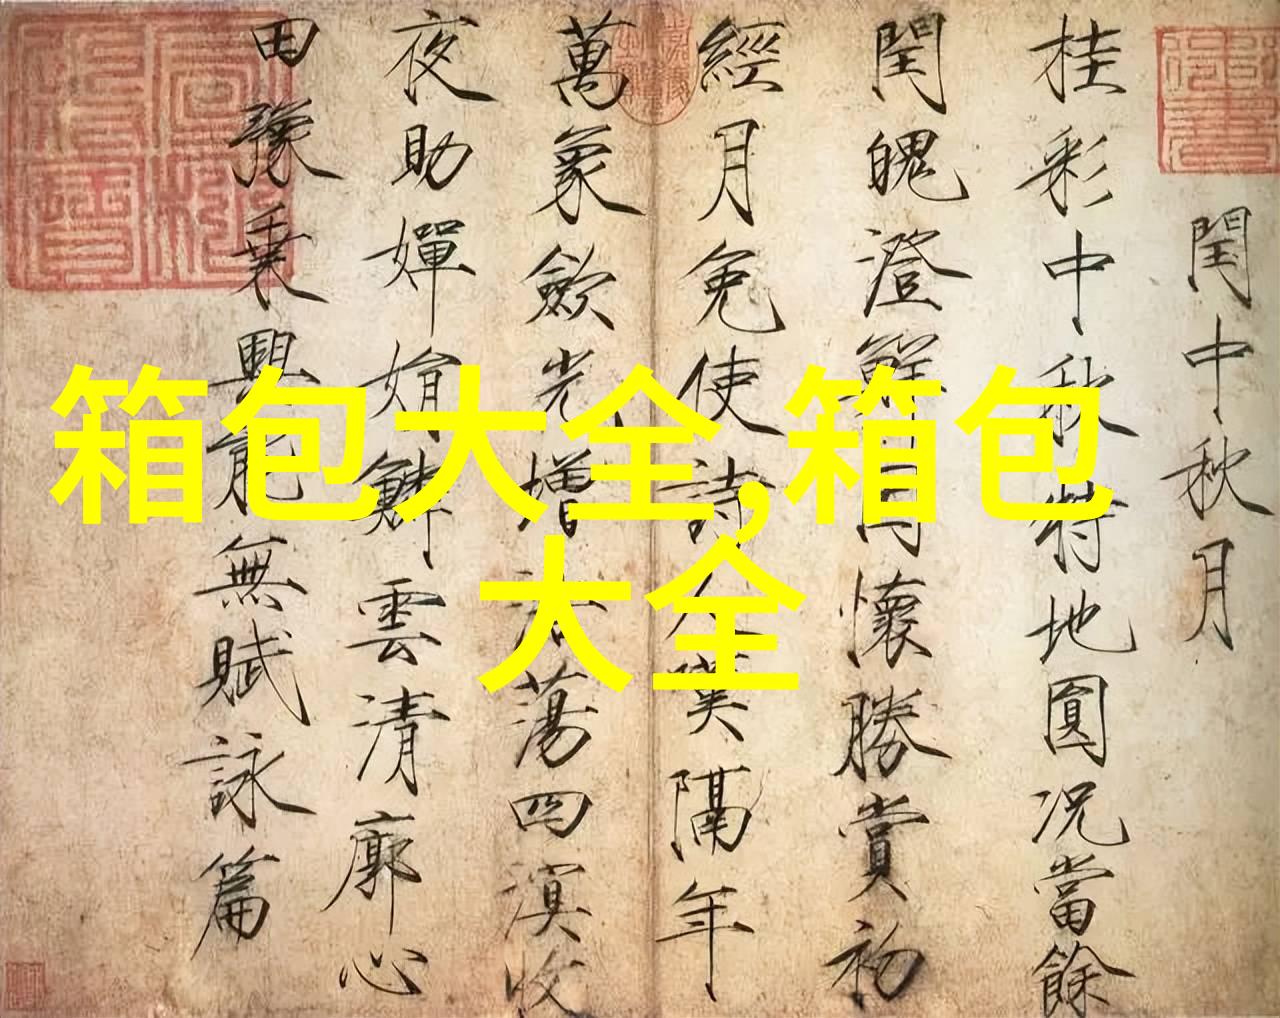 閏中秋月
桂彩中秋特地圓況當餘
閏魄澄鮮因懷勝賞初
經月免使詩人嘆隔年
萬象斂光增浩蕩四溟收
夜助嬋娟鱗雲清廓心
田豫乗興能無賦詠篇
箱包大全,箱包
大全